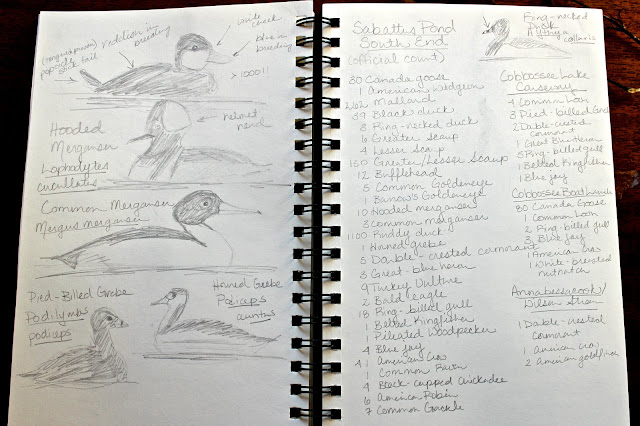 white
cheek
blue in
breeding
reddish in
breeding
popsicle
stick tail
> 1000!!
helmet
head
Hooded
Merganser
Lophodytes
cucullatus
Common Merganser
Mergus merganser
Pied-Billed Grebe
Podilymbus
podiceps
Horned Grebe
Podiceps
auritus
Sabattus Pond
South End
(official count)
80 Canada goose
1 American widgeon
Mallard
39 Black duck
3 Ring-necked duck
6 Greater scaup
4 Lesser scaup
150 Greater/Lesser Scaup
12 Bufflehead
5 Common Goldeneye
1 Barrow's Goldeneye
10 Hooded merganser
3 Common merganser
1100 Ruddy duck
1 Horned grebe
5 Double-crested cormorant
3 Great-blue heron
9 Turkey Vulture
2 Bald eagle
18 Ring-billed gull
1 Belted Kingfisher
1 Pileated Woodpecker
4 Blue jay
41 American Crow
1 Common Raven
4 Black-capped chickadee
6 American Robin
7 Common Grackle
Ring-necked
Duck
Aythya
collaris
Cobbossee Lake
Causeway
4 Common Loon
3 Pied-billed Grebe
2 Double-crested
cormorant
1 Great Blue Heron
5 Ring-billed gull
1 Belted Kingfisher
1 Blue jay
Cobbossee Boat Launch
80 Canada Goose
1 Common Loon
2 Ring-billed gull
3 Blue Jay
1 American Crow
1 White-breasted
nuthatch
Annabessacook/
Wilson Stream
1 Double-crested
cormorant
1 American crow
2 American goldfinch